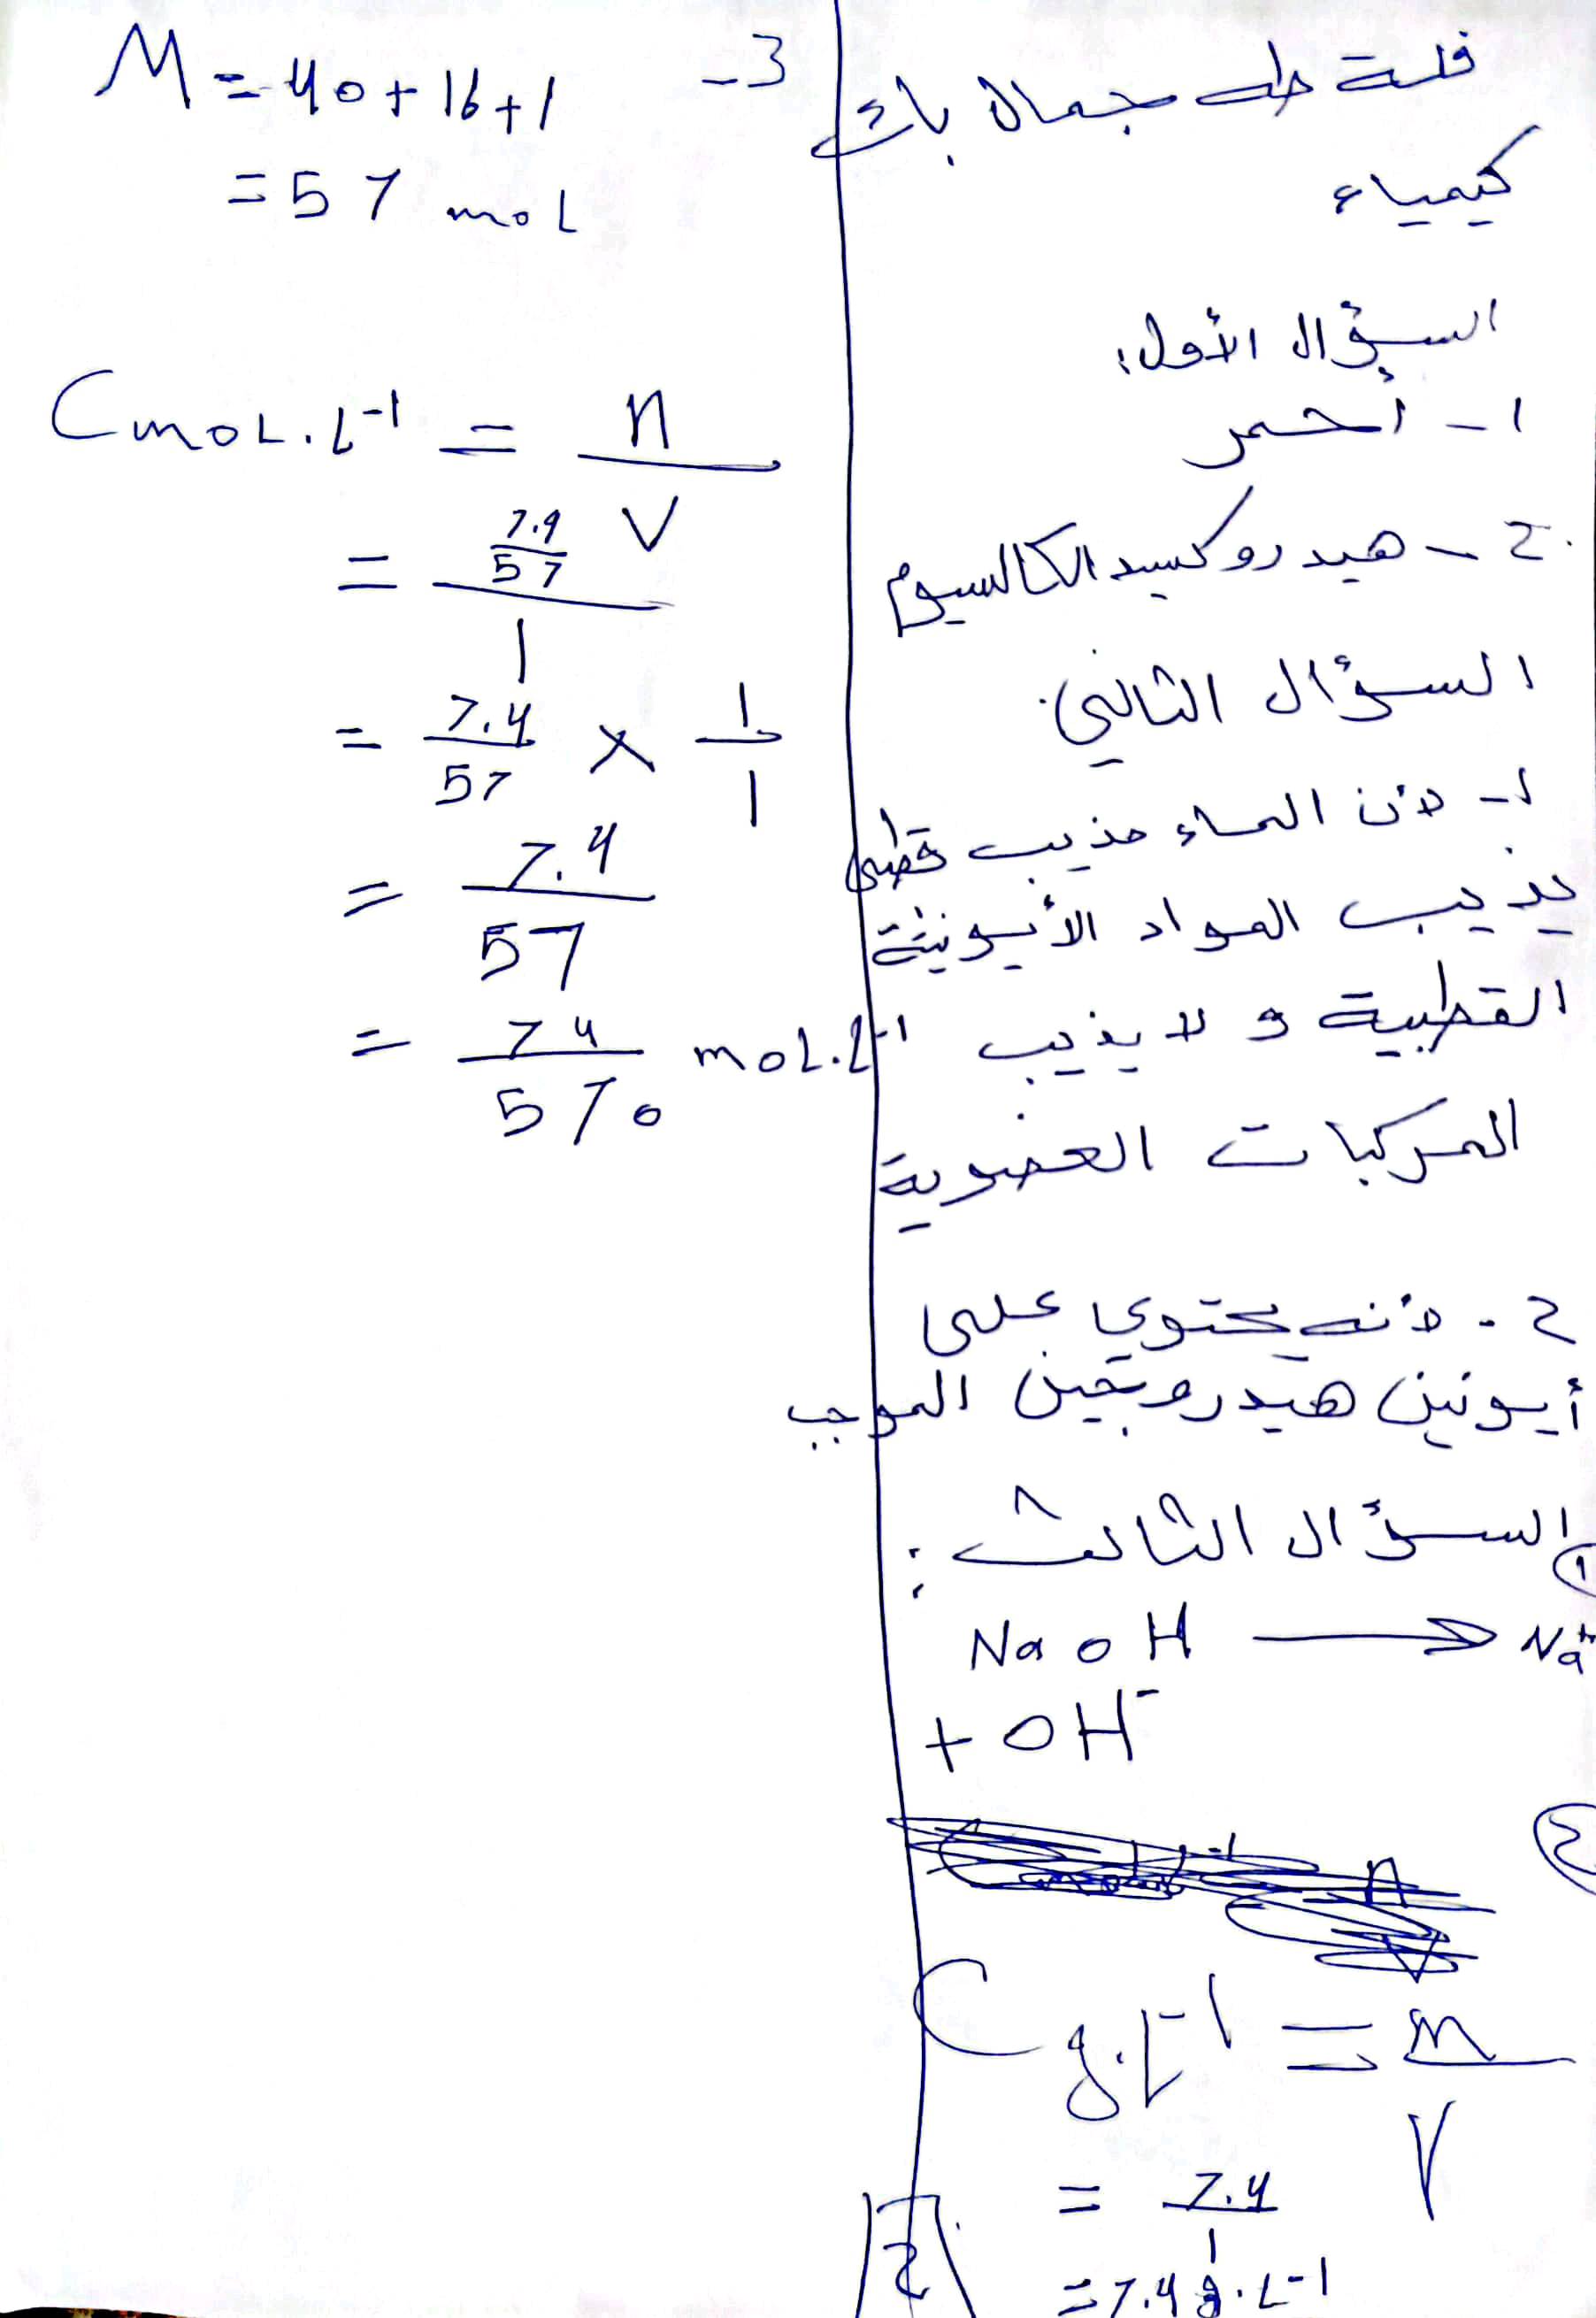 جمال باش
كيمياء
السؤال الأول:
1 - أحمر
2 - هيدروكسيد الكالسيوم
السؤال الثاني:
1 - لأن الماء مذيب قطبي
يذيب المواد الأيونية
القطبية و لا يذيب
المركبات العضوية
2 - لأنه يحتوي على
أيونين هيدروجين الموجب
السؤال الثالث:
1
NaOH → Na⁺
+ OH⁻
2
C g.L⁻¹ = m
V
= 7.4
1
= 7.4 g.L⁻¹
3 -
M = 40 + 16 + 1
= 57 mol
C moL.L⁻¹ = n
V
= 7.4
57
1
= 7.4 × 1
57 1
= 7.4
57
= 74 moL.L⁻¹
570